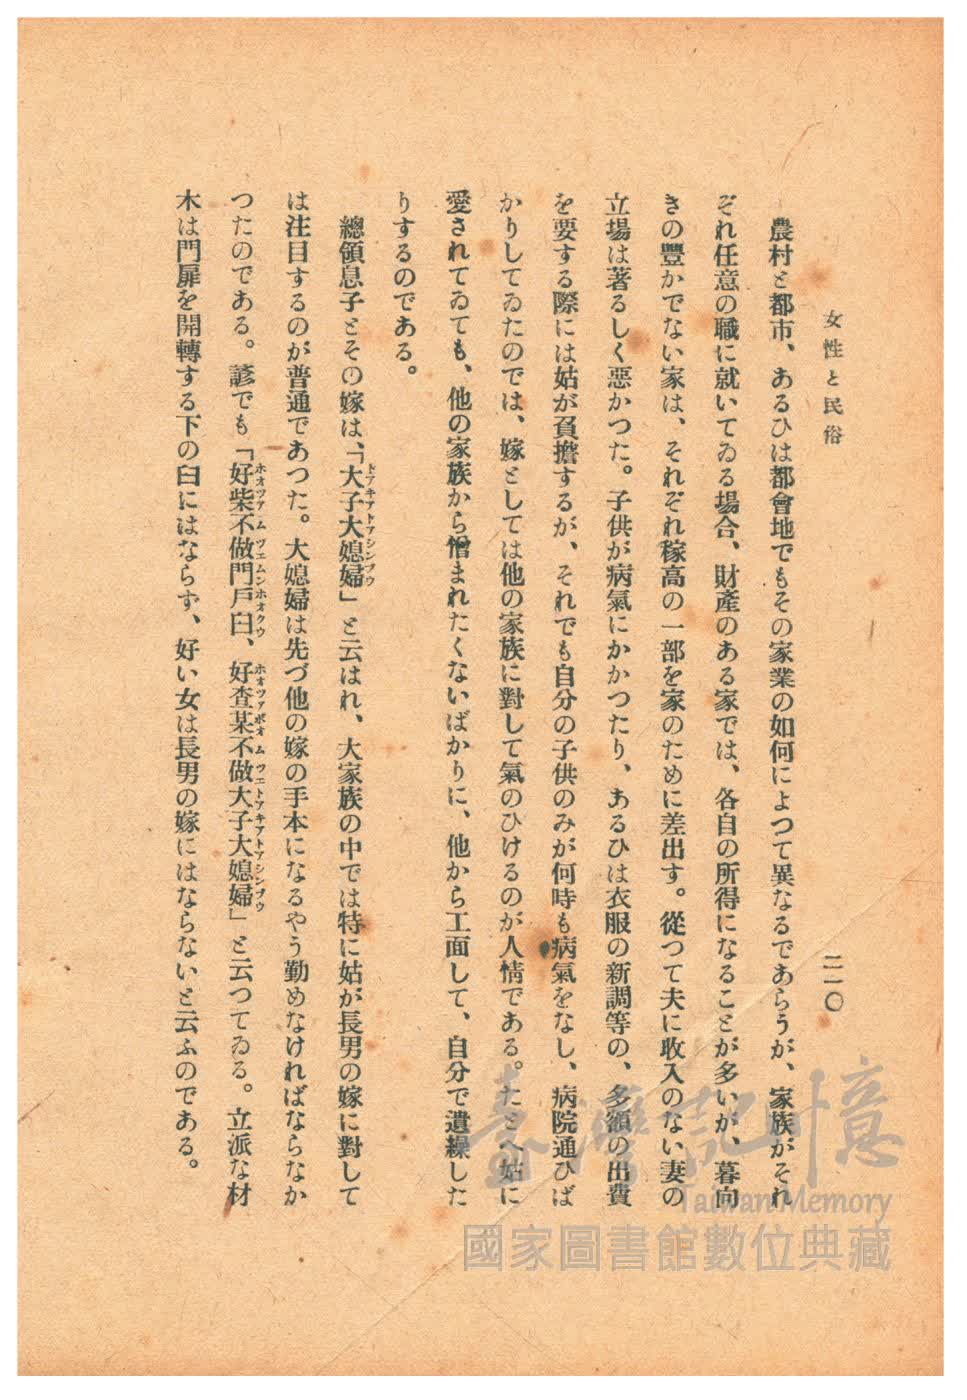 女性と民俗
二一〇
農村と都市、あるひは都會地でもその家業の如何によつて異なるであらうが、家族がそれ
ぞれ任意の職に就いてゐる場合、財產のある家では、各自の所得になることが多いが、暮向
きの豐かでない家は、それぞれ稼高の一部を家のために差出す。從つて夫に收入のない妻の
立場は著るしく惡かつた。子供が病氣にかかつたり、あるひは衣服の新調等の、多額の出費
を要する際には姑が負擔するが、それでも自分の子供のみが何時も病氣をなし、病院通ひば
かりしてゐたのでは、嫁としては他の家族に對して氣のひけるのが人情である。たとへ姑に
愛されてゐても、他の家族から憎まれたくないばかりに、他から工面して、自分で遣繰した
りするのである。
總領息子とその嫁は、「大子大媳婦」と云はれ、大家族の中では特に姑が長男の嫁に對して
は注目するのが普通であつた。大媳婦は先づ他の嫁の手本になるやう勤めなければならなか
つたのである。諺でも「好柴不做門戶臼、好查某不做大子大媳婦」と云つてゐる。立派な材
木は門扉を開轉する下の臼にはならず、好い女は長男の嫁にはならないと云ふのである。
臺灣記憶
Taiwan Memory
國家圖書館數位典藏